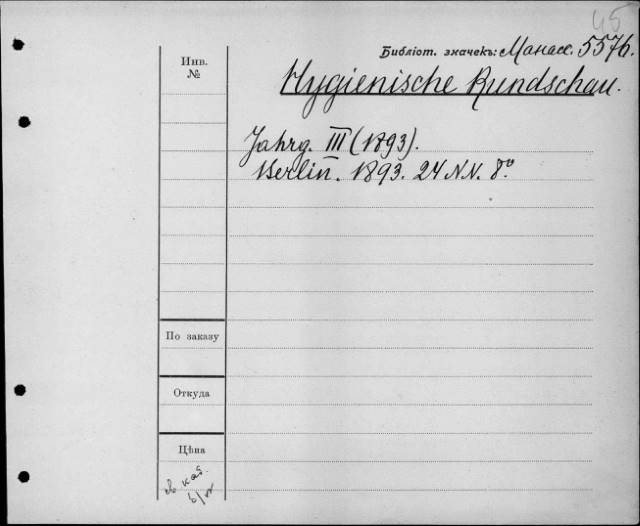 45
Библіот. значекъ: Манасс. 5576.
Инв.
№
Hygienische Rundschau.
Jahrg. III (1893).
Berlin. 1893. 24 N.N. 8°
По заказу
Откуда
Цѣна